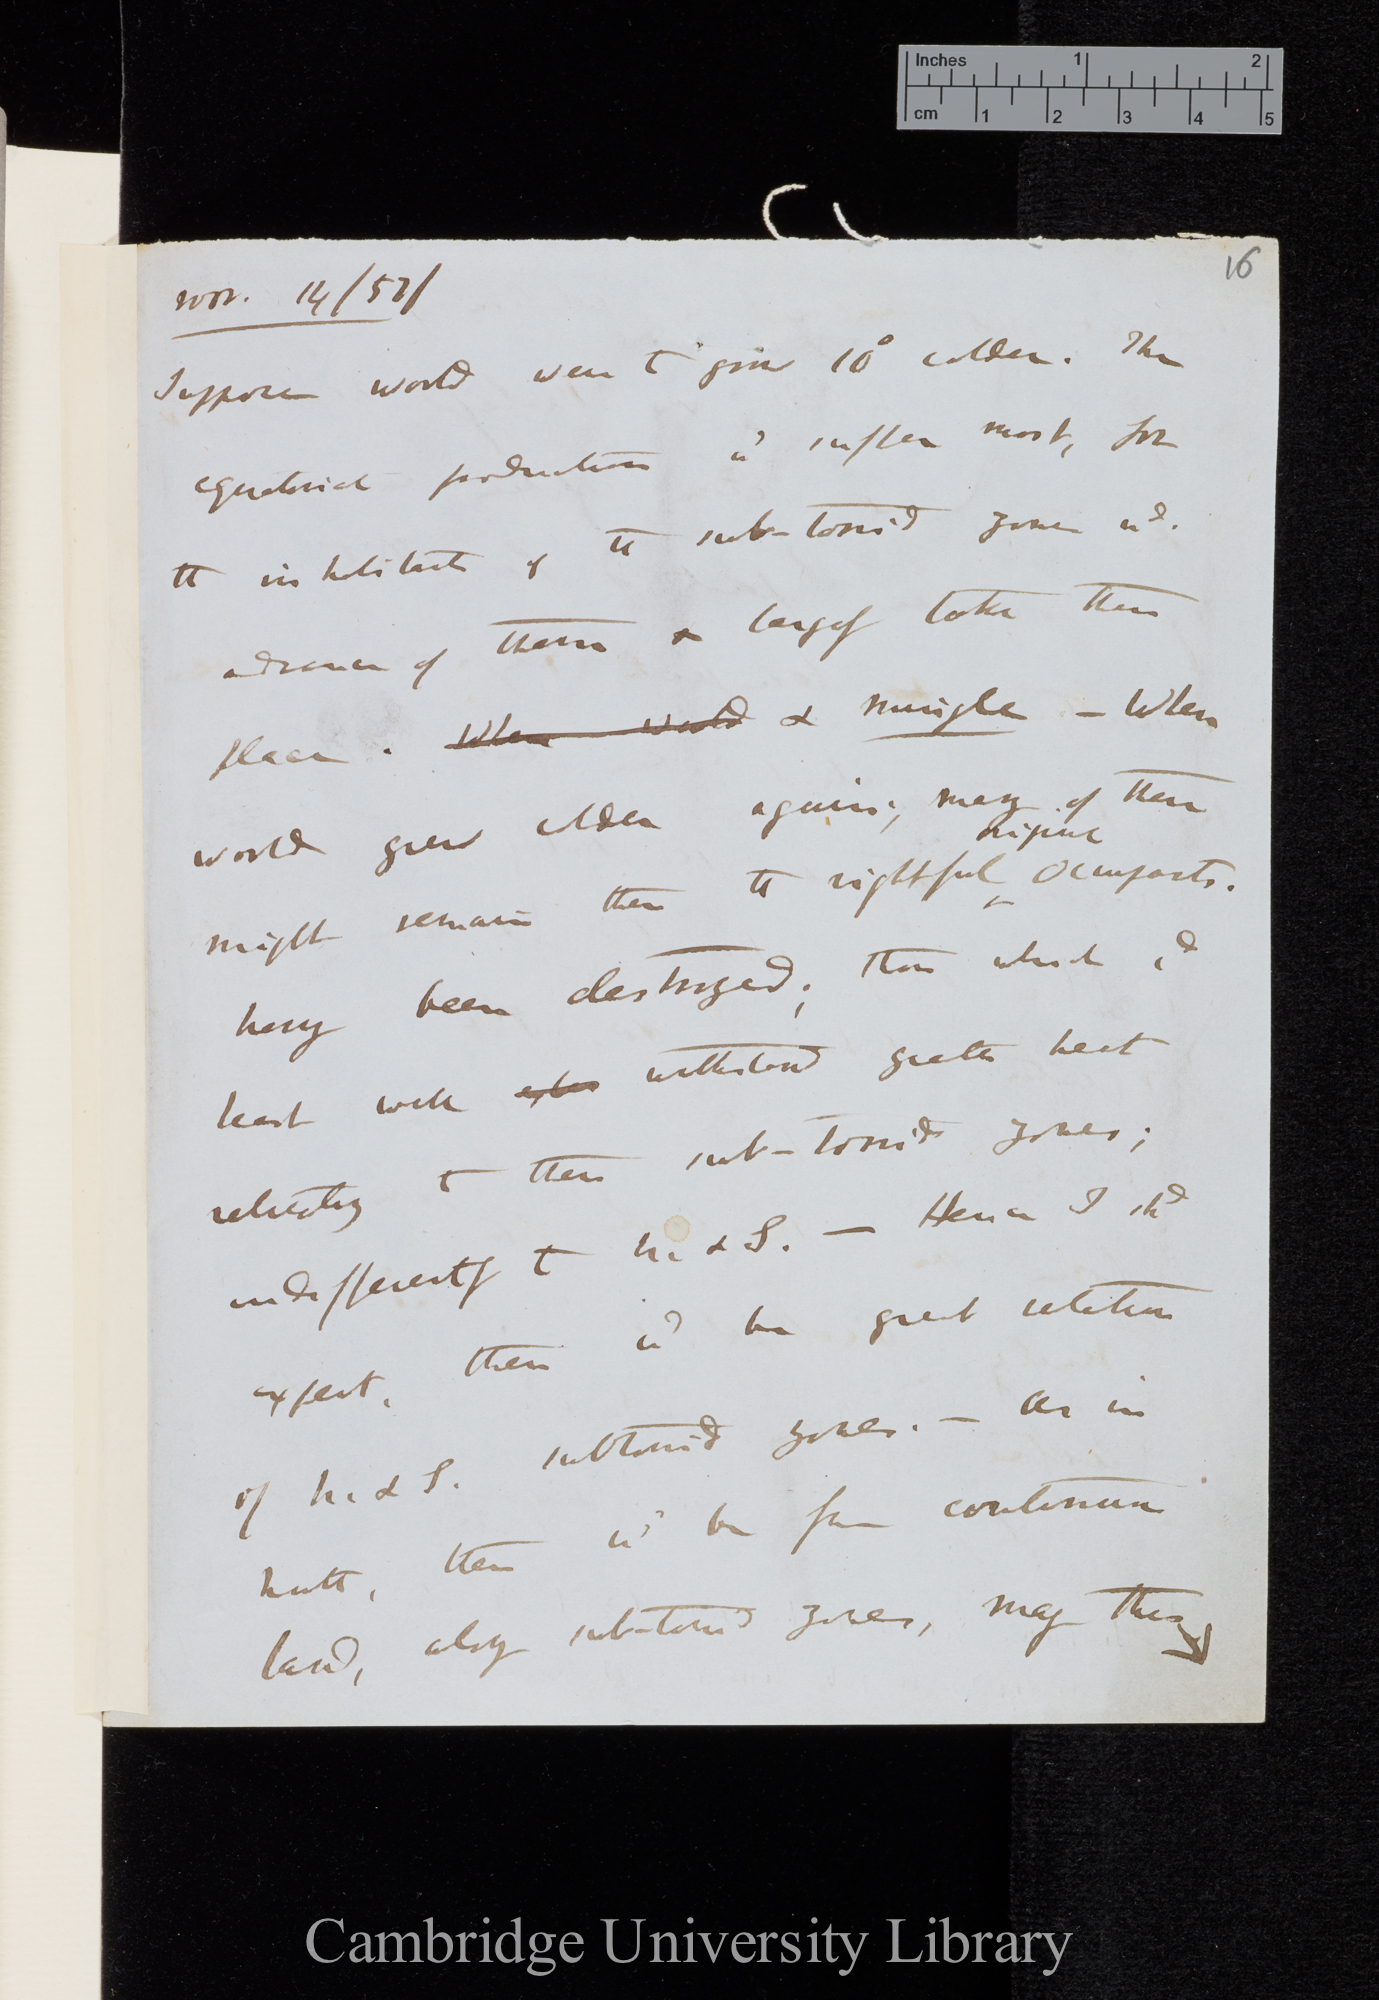 Inches 1 2
cm 1 2 3 4 5
16
Nov. 14/57/
Suppose world were to grow 10° colder. The
equatorial productions wd suffer most, for
the inhabitants of the sub-torrid zone wd.
advance of them & largely take their
place. When world & mingle — When
world grew colder again, many of these
might remain then the rightful original occupants.
having been destroyed; those which cd
least well withstand greater heat
retreating to their sub-torrid zones;
indifferently to N. & S. — Hence I shd
expect, there wd be great relation
of N. & S. subtorrid zones. — as in
north, there wd be some continuous
land, along sub-torrid zones, may thus
Cambridge University Library